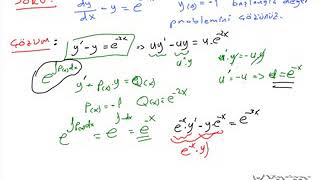 SORU: dy/dx - y = e^-2x y(0) = -1 başlangıç değer
problemini çözünüz.
ÇÖZÜM: y' - y = e^-2x ⇒ uy' - uy = u.e^-2x
u'.y u' = -u
e^∫P(x)dx y' + P(x).y = Q(x) u' = -u ⇒ u = e^-x
P(x) = -1 Q(x) = e^-2x
e^∫P(x)dx = e^∫-dx = e^-x e^-x.y' - y.e^-x = e^-3x
(e^-x.y)'